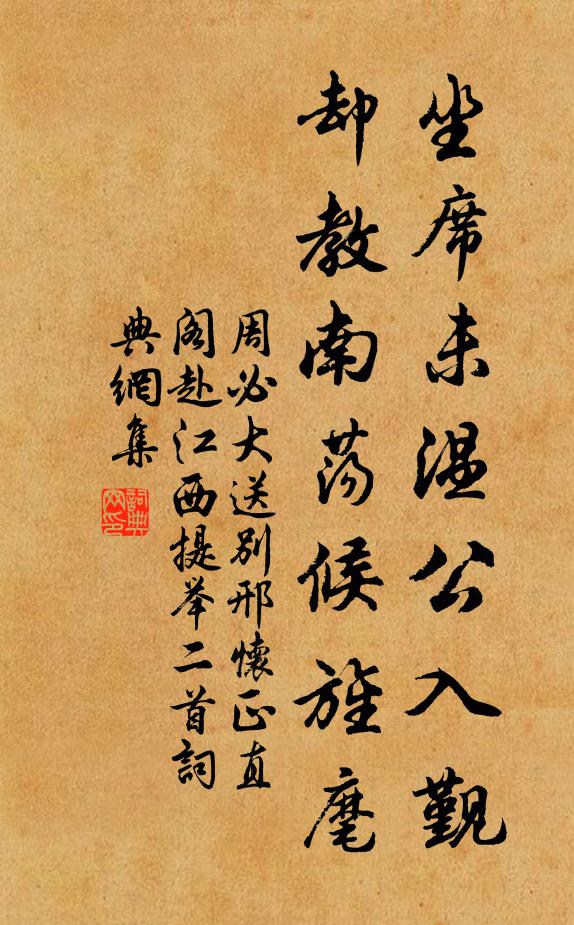 坐席未温公入觐
却教南荡候旌麾
周必大送别邢懷正直
阁赴江西提举二首詞
典網集
詞典網印